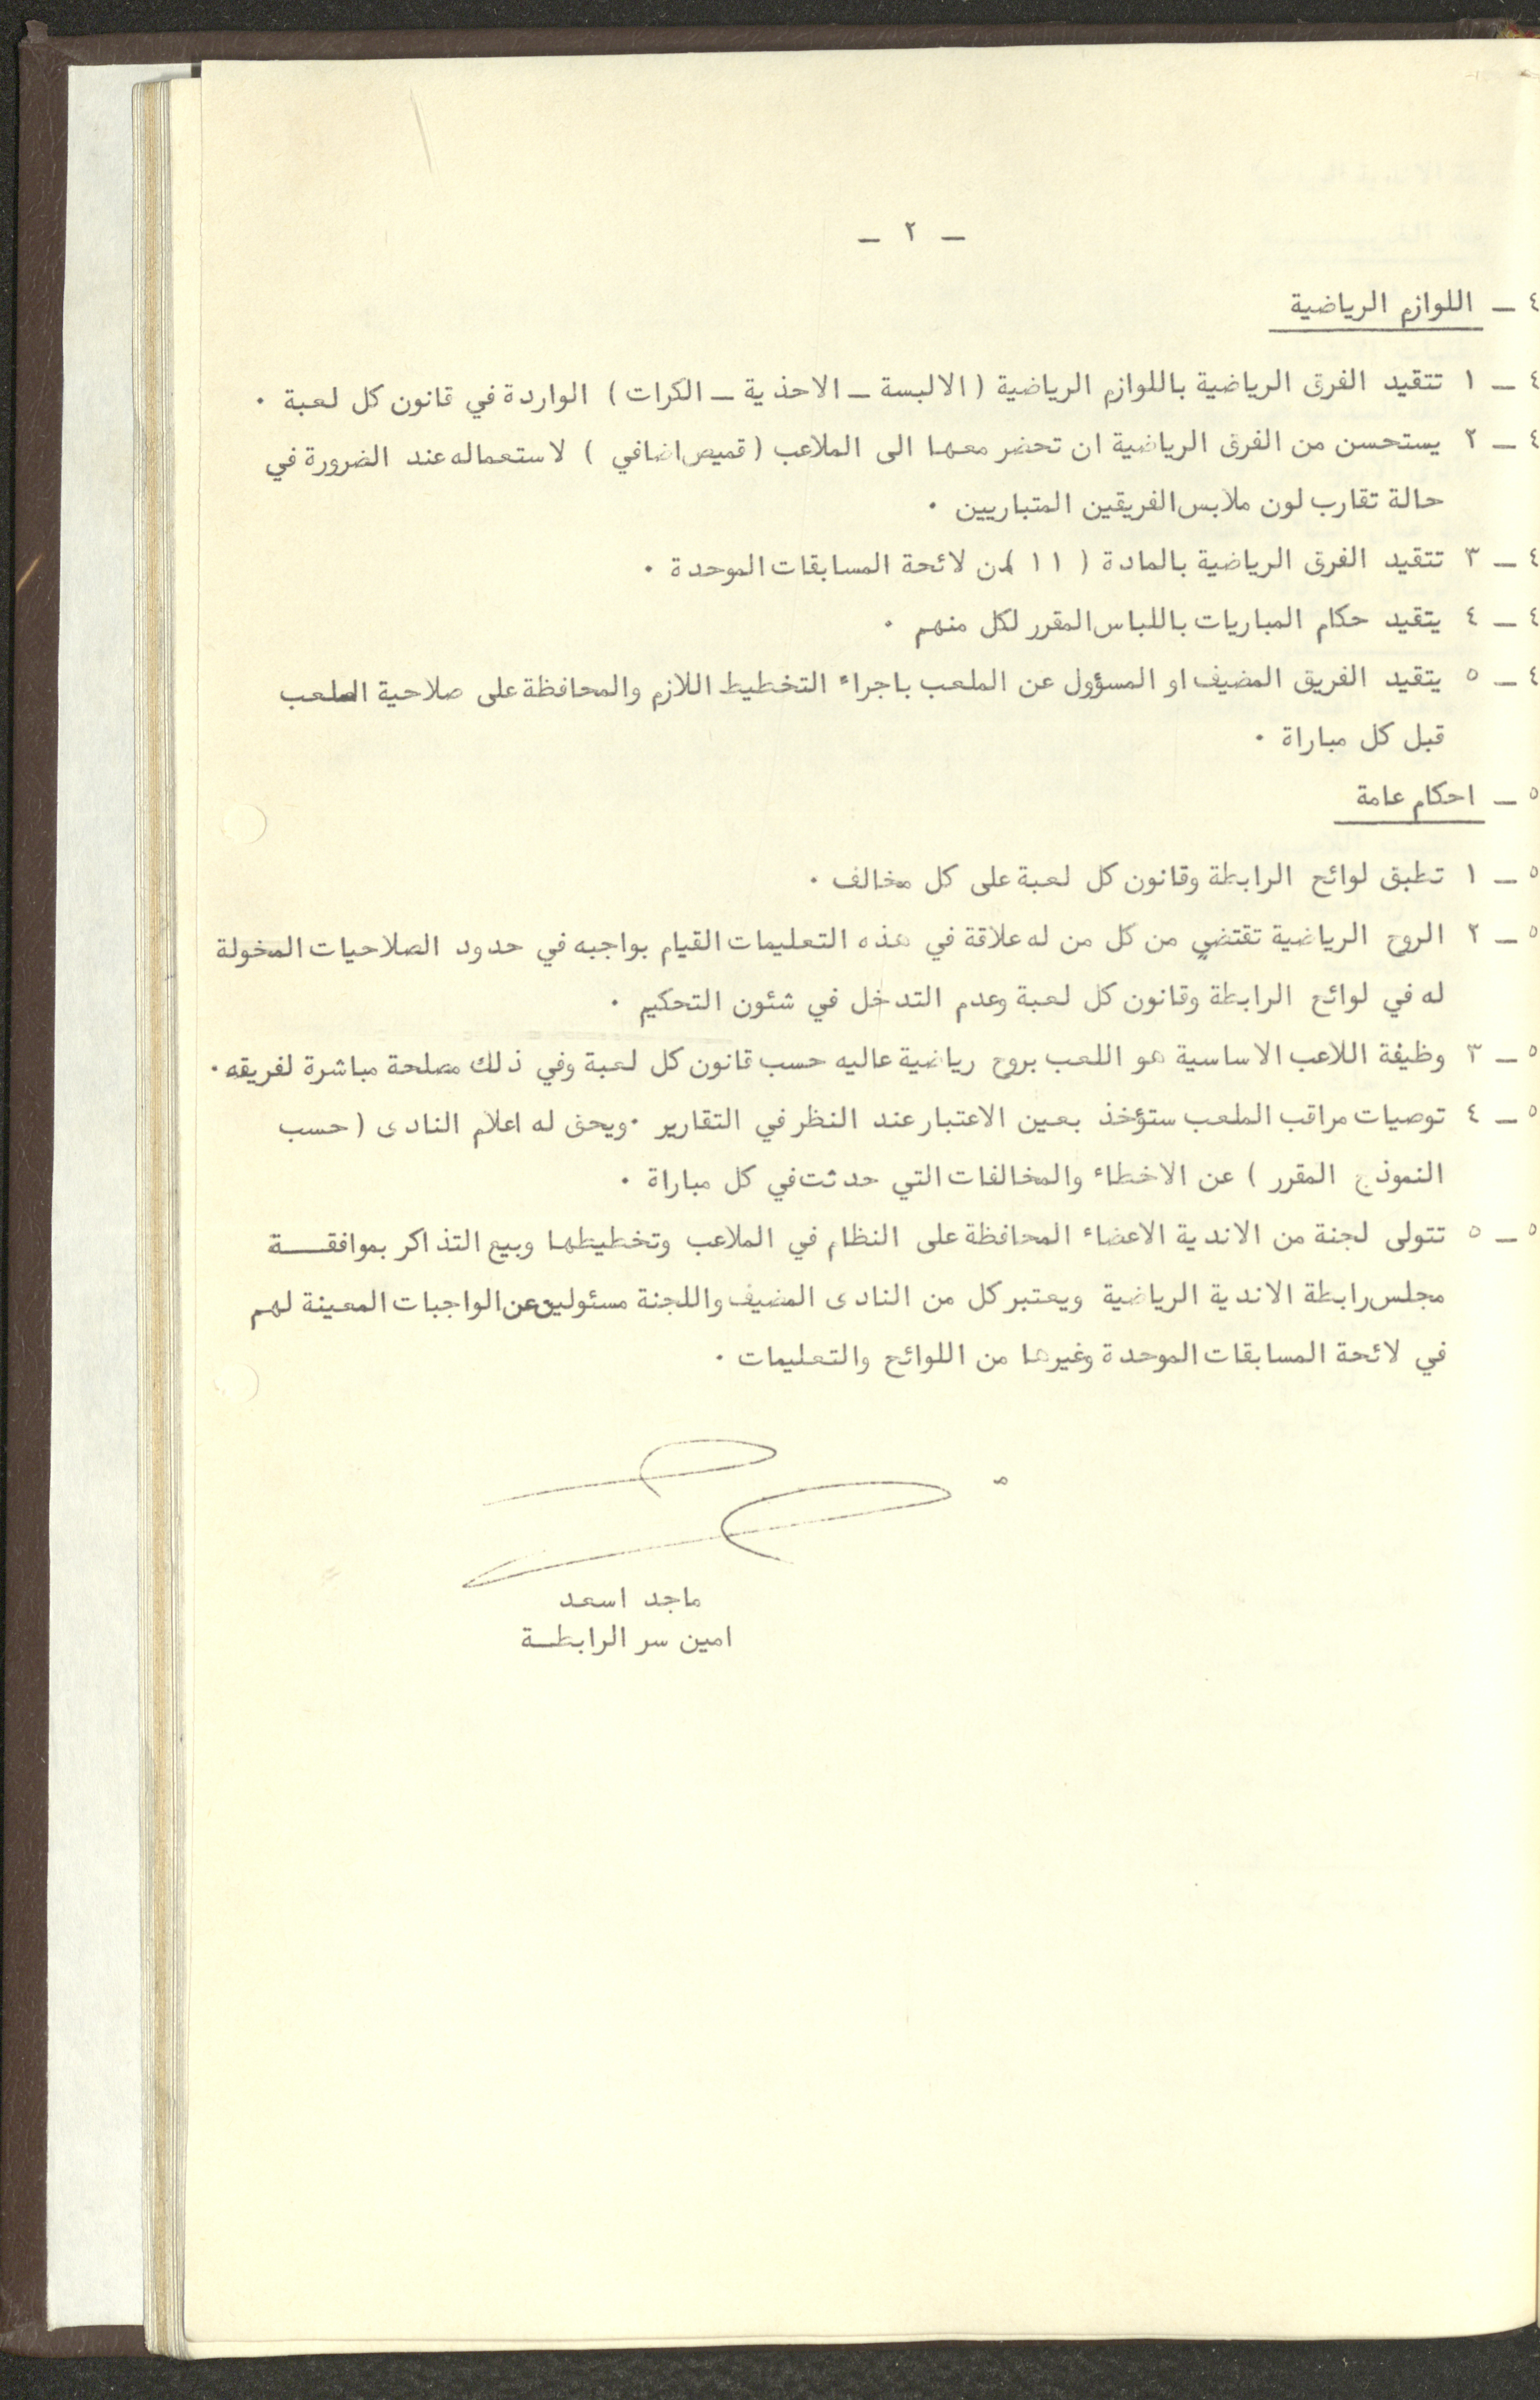 ـ ٢ ـ
٤ ـ اللوازم الرياضية
٤ ـ ١ تتقيد الفرق الرياضية باللوازم الرياضية ( الالبسة ـ الاحذية ـ الكرات ) الواردة في قانون كل لعبة ٠
٤ ـ ٢ يستحسن من الفرق الرياضية ان تحضر معها الى الملاعب ( قميص اضافي ) لاستعماله عند الضرورة في
حالة تقارب لون ملابس الفريقين المتباريين ٠
٤ ـ ٣ تتقيد الفرق الرياضية بالمادة ( ١١ ) من لائحة المسابقات الموحدة ٠
٤ ـ ٤ يتقيد حكام المباريات باللباس المقرر لكل منهم ٠
٤ ـ ٥ يتقيد الفريق المضيف او المسؤول عن الملعب باجراء التخطيط اللازم والمحافظة على صلاحية الملعب
قبل كل مباراة ٠
٥ ـ احكام عامة
٥ ـ ١ تطبق لوائح الرابطة وقانون كل لعبة على كل مخالف ٠
٥ ـ ٢ الروح الرياضية تقتضي من كل من له علاقة في هذه التعليمات القيام بواجبه في حدود الصلاحيات المخولة
له في لوائح الرابطة وقانون كل لعبة وعدم التدخل في شئون التحكيم ٠
٥ ـ ٣ وظيفة اللاعب الاساسية هو اللعب بروح رياضية عاليه حسب قانون كل لعبة وفي ذلك مصلحة مباشرة لفريقه ٠
٥ ـ ٤ توصيات مراقب الملعب ستؤخذ بعين الاعتبار عند النظر في التقارير ٠ ويحق له اعلام النادى ( حسب
النموذج المقرر ) عن الاخطاء والمخالفات التي حدثت في كل مباراة ٠
٥ ـ ٥ تتولى لجنة من الاندية الاعضاء المحافظة على النظام في الملاعب وتخطيطها وبيع التذاكر بموافقـــة
مجلس رابطة الاندية الرياضية ويعتبر كل من النادى المضيف واللجنة مسئولين عن الواجبات المعينة لهم
في لائحة المسابقات الموحدة وغيرها من اللوائح والتعليمات ٠
ماجد اسعد
امين سر الرابطـة